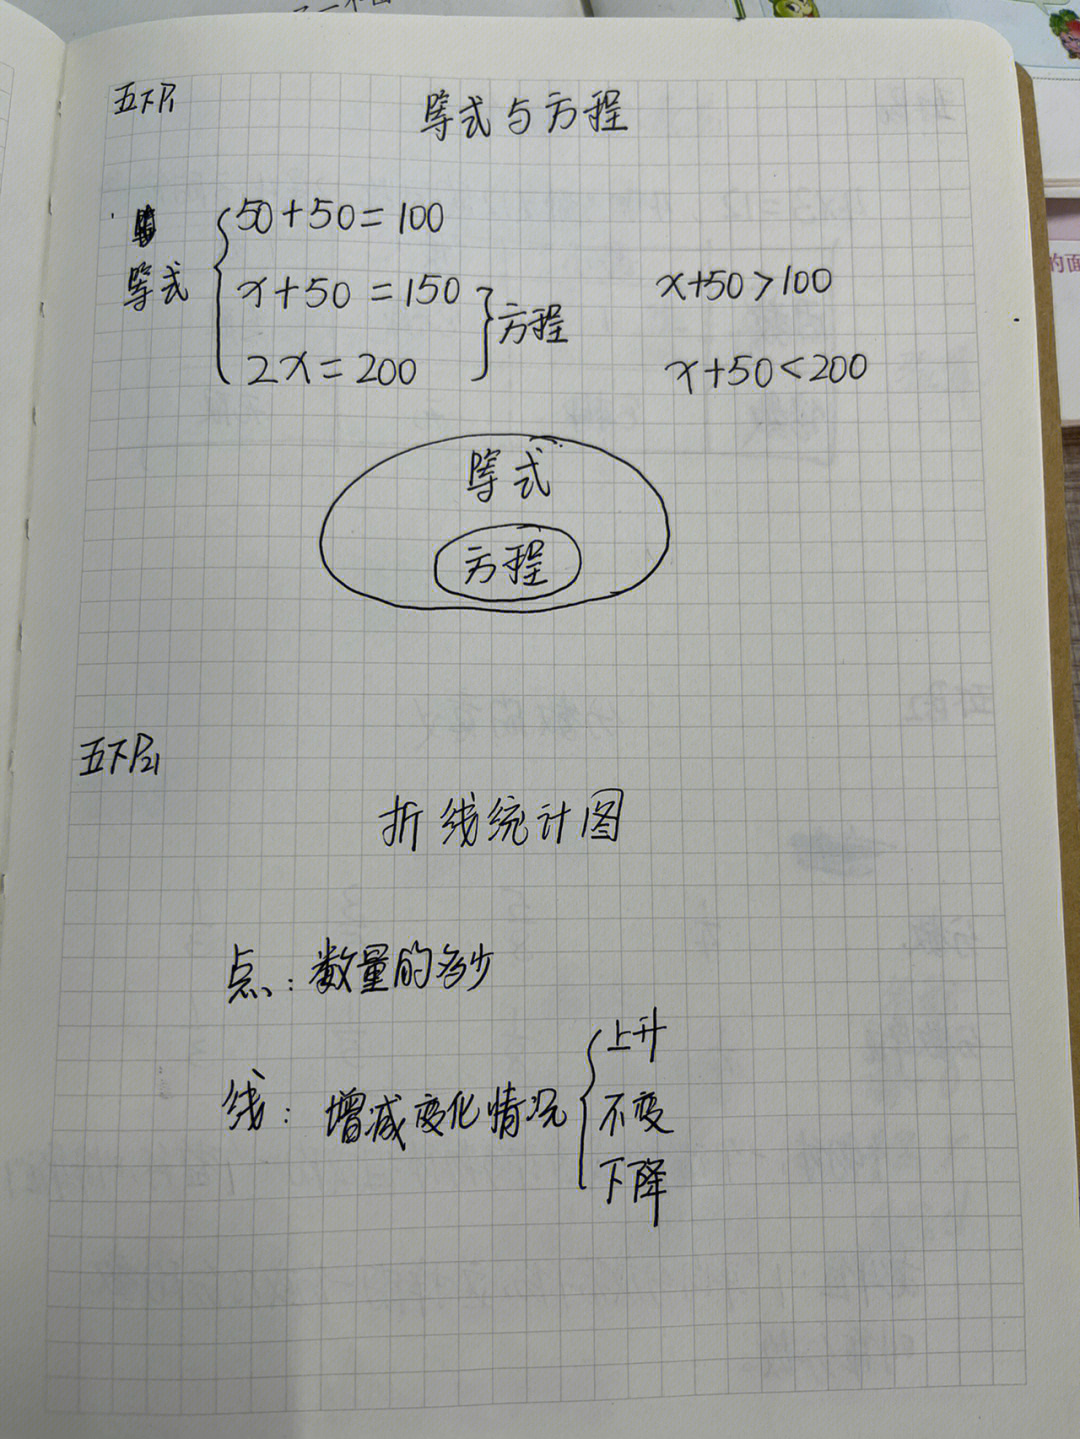 五下P1
等式与方程
50+50=100
等式
x+50=150
方程
x+50>100
2x=200
x+50<200
等式
方程
五下P21
折线统计图
点：数量的多少
线：增减变化情况
上升
不变
下降
的面